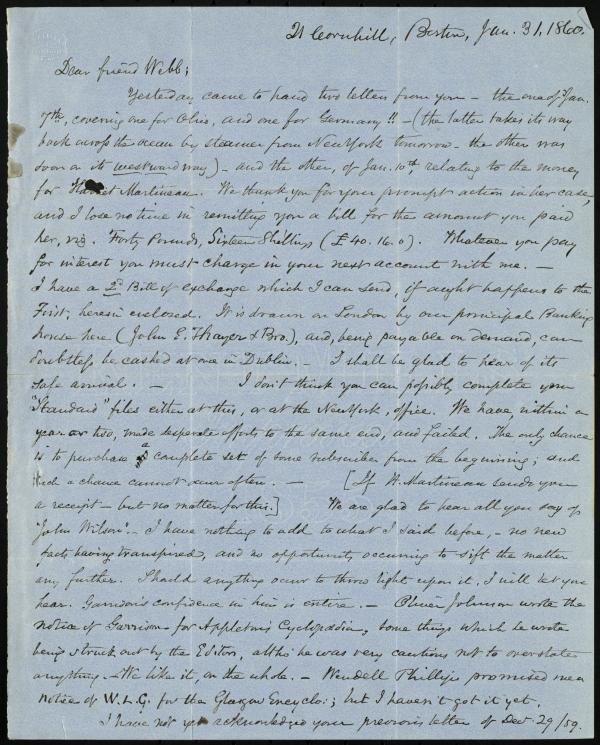 21 Cornhill, Boston, Jan. 31, 1860.
Dear friend Webb;
Yesterday came to hand two letters from you — the one of Jan.
7th, covering one for Ohio, and one for Germany!! — (the latter takes its way
back across the ocean by steamer from New York tomorrow — the other was
soon on its westward way) — and the other, of Jan. 10th, relating to the money
for Harriet Martineau. We thank you for your prompt action in her case,
and I lose no time in remitting you a bill for the amount you paid
her, viz. Forty Pounds, Sixteen Shillings (£40.16.0). Whatever you pay
for interest you must charge in your next account with me. —
I have a 2d Bill of exchange which I can send, if aught happens to the
First, herein enclosed. It is drawn on London by our principal Banking
house here (John E. Thayer & Bro.), and, being payable on demand, can
doubtless be cashed at once in Dublin. — I shall be glad to hear of its
safe arrival. — I don't think you can possibly complete your
"Standard" files either at this, or at the New York, office. We have, within a
year or two, made desperate efforts to the same end, and failed. The only chance
is to purchase a complete set of some subscriber from the beginning; and
such a chance cannot occur often. — [If H. Martineau sends you
a receipt — but no matter for this.] We are glad to hear all you say of
"John Wilson". — I have nothing to add to what I said before, — no new
facts having transpired, and no opportunity occurring to sift the matter
any further. Should anything occur to throw light upon it, I will let you
hear. Garrison's confidence in him is entire. — Oliver Johnson wrote the
notice of Garrison for Appleton's Cyclopædia, some things which he wrote
being struck out by the Editor, altho' he was very cautious not to overstate
anything. — We like it, on the whole. — Wendell Phillips promised me a
notice of W.L.G. for the Glasgow Encyclo.; but I haven't got it yet.
I have not yet acknowledged your previous letter of Dec. 29/59.